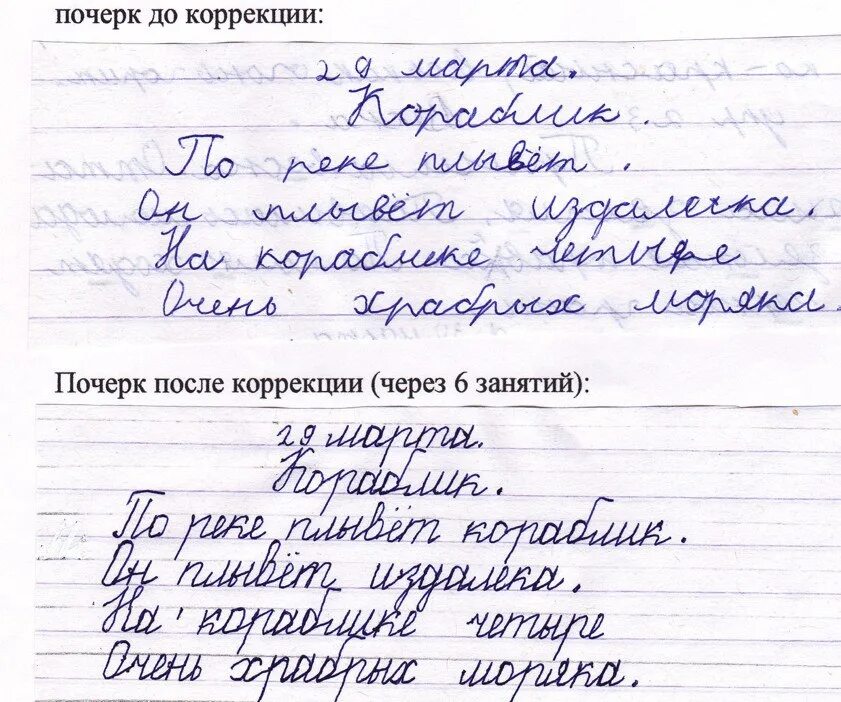 почерк до коррекции:
29 марта.
Кораблик.
По реке плывёт.
Он плывёт издалека.
На кораблике четыре
Очень храбрых моряка.
Почерк после коррекции (через 6 занятий):
29 марта.
Кораблик.
По реке плывёт кораблик.
Он плывёт издалека.
На кораблике четыре
Очень храбрых моряка.